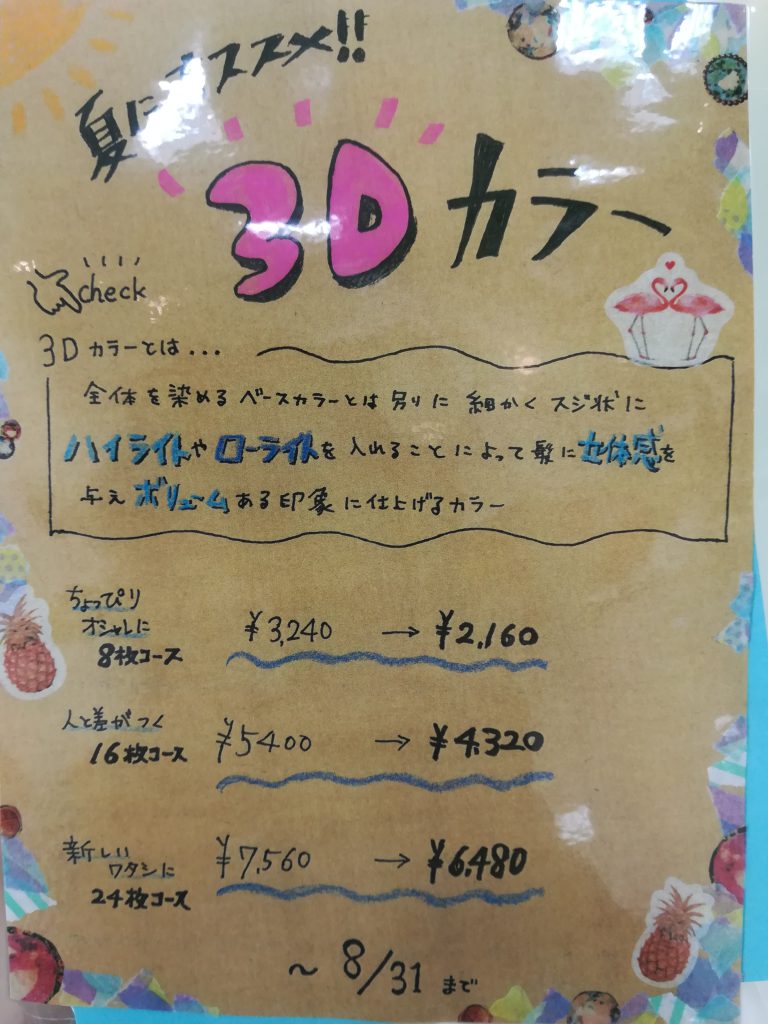 夏にオススメ!!
3Dカラー
check
3Dカラーとは...
全体を染めるベースカラーとは別に細かくスジ状に
ハイライトやローライトを入れることによって髪に立体感を
与えボリュームある印象に仕上げるカラー
ちょっぴり
オシャレに
8枚コース
¥3,240 → ¥2,160
人と差がつく
16枚コース
¥5400 → ¥4,320
新しい
ワタシに
24枚コース
¥7,560 → ¥6,480
~8/31まで